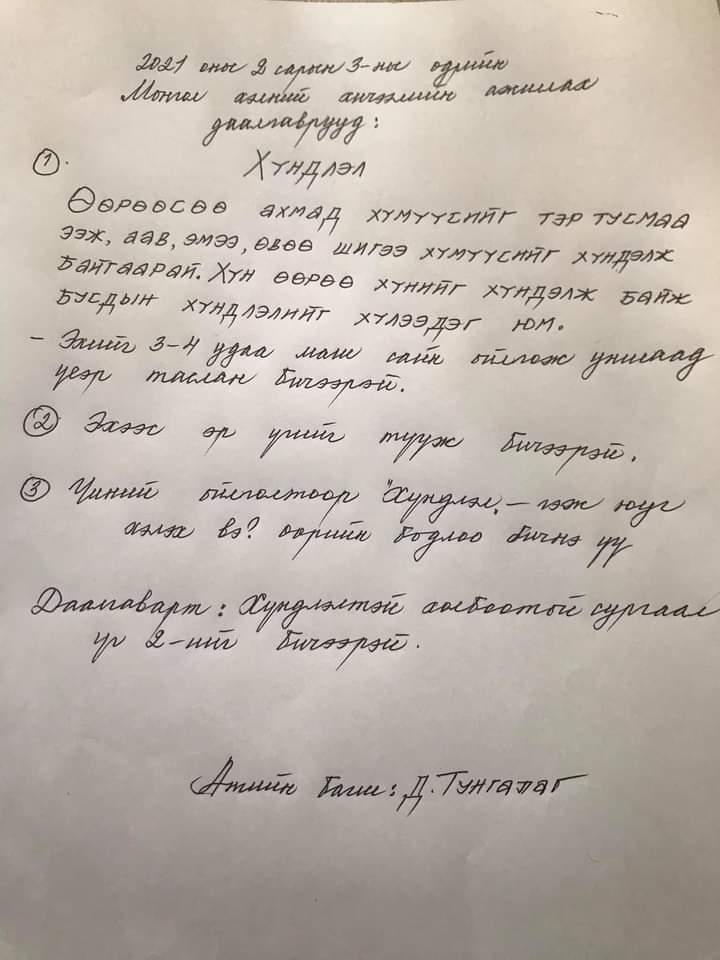 2021 оны 2 сарын 3-ны өдрийн
Монгол хэлний хичээлийн ажиллах
даалгаврууд:
① Хүндлэл
Өөрөөсөө ахмад хүмүүсийг тэр тусмаа
ээж, аав, эмээ, өвөө шигээ хүмүүсийг хүндэлж
байгаарай. Хүн өөрөө хүнийг хүндэлж байж
бусдын хүндлэлийг хүлээдэг юм.
- Эхийг 3-4 удаа маш сайн ойлгож уншаад
үеэр таслан бичээрэй.
② Эхээс эр үгийг түүж бичээрэй.
③ Чиний ойлголтоор "Хүндлэл" - гэж юуг
хэлэх вэ? өөрийн бодлоо бичнэ үү
Даалгаварт: Хүндлэлтэй холбоотой сургаал
үг 2-ийг бичээрэй.
Ангийн багш: Д. Тунгалаг